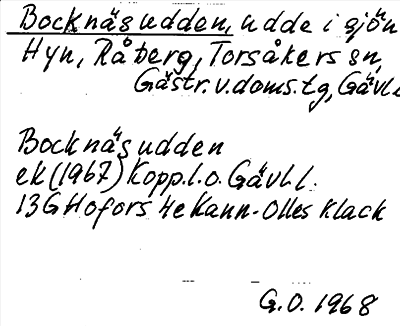 Bocknäsudden, udde i sjön
Hyn, Råberg, Torsåkers sn,
Gästr. v. doms. tg, Gävl.
Bocknäsudden
ek (1967) Kopp. l. o. Gävl. l.
13G Hofors 4e Kann-Olles Klack
G.O. 1968